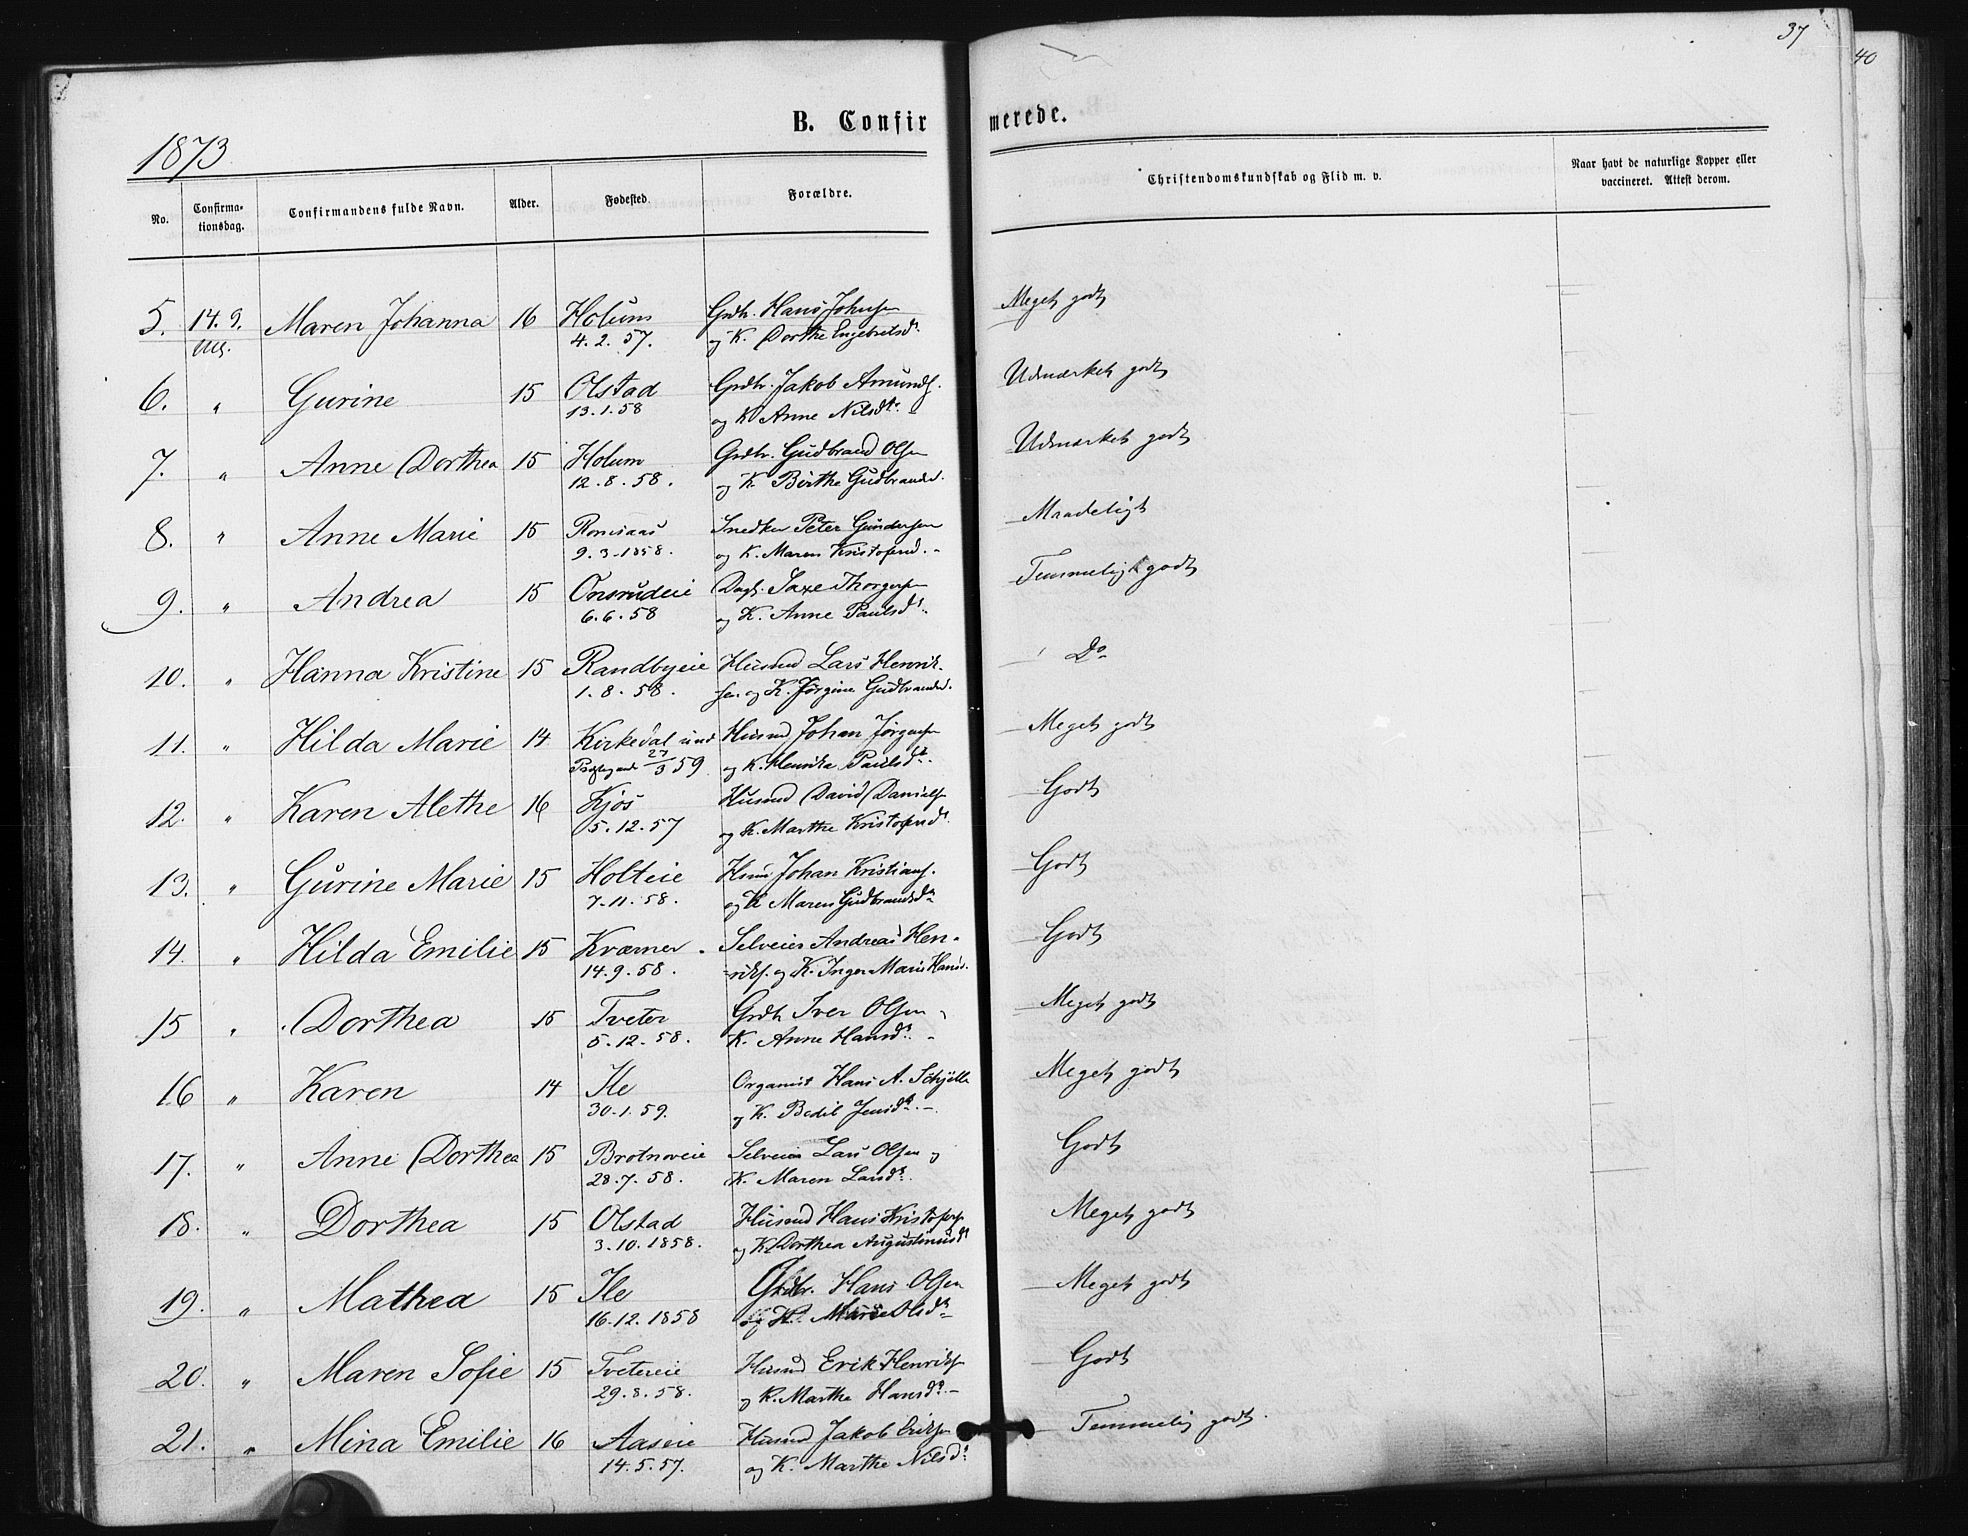 37
40
B. Confirmerede.
1873
No. Confirmationsdag. Confirmandens fulde Navn. Alder. Fødested. Forældre. Christendomskundskab og Flid m. v. Naar havt de naturlige Kopper eller vaccineret. Attest derom.
5. 14. 9. Maren Johanna 16 Holum Grdbr. Hans Johnsen Meget godt
4. 2. 57. og K. Dorthe Engebretsdr.
6. " Gurine 15 Olstad Grdbr. Jakob Amunds. Udmærket godt
13. 1. 58 og K Anne Nilsdr.
7. " Anne Dorthea 15 Holum Grdbr. Gudbrand Olsen Udmærket godt
12. 8. 58. og K. Birthe Gudbrandsd.
8. " Anne Marie 15 Snedker Peter Gundersen Maadeligt
9. 3. 1858. og K. Maren Kristofersd. -
9. " Andrea 15 Onsrudeie Saxe Thorgersen Temmelig godt
6. 6. 58 og K. Anne Paulsdr.
10. " Hanna Kristine 15 Randbyeie Husmd Lars Henrik- Do
1. 8. 58. sen og K. Jørgine Gudbrandsd.
11. " Hilda Marie 14 Kirkedal und Husmd Johan Jørgensen Meget godt
27/3 59. og K. Henrika Paulsdr.
12. " Karen Alethe 16 Kjos Husmd David Daniels. Godt
5. 12. 57 og K. Marthe Kristofersdr.
13. " Gurine Marie 15 Holteie Husm Johan Kristians. Godt
7. 11. 58. og K Maren Gudbrandsdr
14. " Hilda Emilie 15 Kværner. Selveier Andreas Hen- Godt
14. 9. 58. riks. og K. Inger Marie Hansd.
15 " Dorthea 15 Tveter Grdbr Iver Olsen Meget godt
5. 12. 58. K. Anne Hansdr. -
16 " Karen 14 Ile Organist Hans A. Meget godt
30. 1. 59. og K. Bodil Jensdr. -
17. " Anne Dorthea 15 Brotnoveie Selveier Lars Olsen og Godt
28. 7. 58. K. Maren Larsdr.
18. " Dorthea 15 Olstad Husmd Hans Kristofers. Meget godt
3. 10. 1858. og K. Dorthea Augustinusdr
19. " Mathea 15 Ile Grdbr. Hans Olsen Meget godt
16. 12. 1858 og K. Marie Olsdr
20. " Maren Sofie 15 Tvetereie Husmd Erik Henriks. Godt
29. 8. 58. og K. Marthe Hansdr. -
21. " Mina Emilie 16 Aaseie Husmd Jakob Eriksen Temmelig godt.
14. 5. 57. og K. Marthe Nilsdr